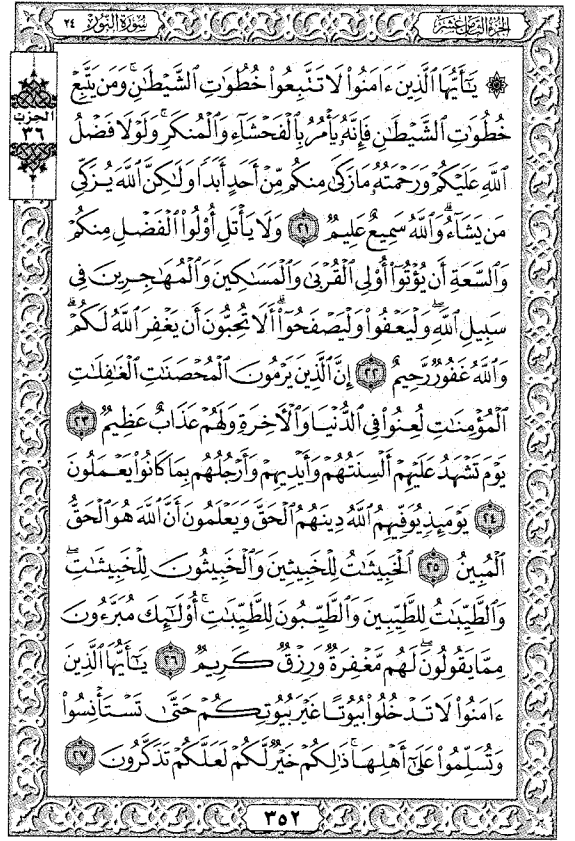 الجزء الثامن عشر
سورة النور ٢٤
الحزب
٣٦
۞ يَٰٓأَيُّهَا ٱلَّذِينَ ءَامَنُوا۟ لَا تَتَّبِعُوا۟ خُطُوَٰتِ ٱلشَّيْطَٰنِ ۚ وَمَن يَتَّبِعْ
خُطُوَٰتِ ٱلشَّيْطَٰنِ فَإِنَّهُۥ يَأْمُرُ بِٱلْفَحْشَآءِ وَٱلْمُنكَرِ ۚ وَلَوْلَا فَضْلُ
ٱللَّهِ عَلَيْكُمْ وَرَحْمَتُهُۥ مَا زَكَىٰ مِنكُم مِّنْ أَحَدٍ أَبَدًا وَلَٰكِنَّ ٱللَّهَ يُزَكِّى
مَن يَشَآءُ ۗ وَٱللَّهُ سَمِيعٌ عَلِيمٌ ٢١ وَلَا يَأْتَلِ أُو۟لُوا۟ ٱلْفَضْلِ مِنكُمْ
وَٱلسَّعَةِ أَن يُؤْتُوٓا۟ أُو۟لِى ٱلْقُرْبَىٰ وَٱلْمَسَٰكِينَ وَٱلْمُهَٰجِرِينَ فِى
سَبِيلِ ٱللَّهِ ۖ وَلْيَعْفُوا۟ وَلْيَصْفَحُوٓا۟ ۗ أَلَا تُحِبُّونَ أَن يَغْفِرَ ٱللَّهُ لَكُمْ ۗ
وَٱللَّهُ غَفُورٌ رَّحِيمٌ ٢٢ إِنَّ ٱلَّذِينَ يَرْمُونَ ٱلْمُحْصَنَٰتِ ٱلْغَٰفِلَٰتِ
ٱلْمُؤْمِنَٰتِ لُعِنُوا۟ فِى ٱلدُّنْيَا وَٱلْءَاخِرَةِ وَلَهُمْ عَذَابٌ عَظِيمٌ ٢٣
يَوْمَ تَشْهَدُ عَلَيْهِمْ أَلْسِنَتُهُمْ وَأَيْدِيهِمْ وَأَرْجُلُهُم بِمَا كَانُوا۟ يَعْمَلُونَ
٢٤ يَوْمَئِذٍ يُوَفِّيهِمُ ٱللَّهُ دِينَهُمُ ٱلْحَقَّ وَيَعْلَمُونَ أَنَّ ٱللَّهَ هُوَ ٱلْحَقُّ
ٱلْمُبِينُ ٢٥ ٱلْخَبِيثَٰتُ لِلْخَبِيثِينَ وَٱلْخَبِيثُونَ لِلْخَبِيثَٰتِ ۖ
وَٱلطَّيِّبَٰتُ لِلطَّيِّبِينَ وَٱلطَّيِّبُونَ لِلطَّيِّبَٰتِ ۚ أُو۟لَٰٓئِكَ مُبَرَّءُونَ
مِمَّا يَقُولُونَ ۖ لَهُم مَّغْفِرَةٌ وَرِزْقٌ كَرِيمٌ ٢٦ يَٰٓأَيُّهَا ٱلَّذِينَ
ءَامَنُوا۟ لَا تَدْخُلُوا۟ بُيُوتًا غَيْرَ بُيُوتِكُمْ حَتَّىٰ تَسْتَأْنِسُوا۟
وَتُسَلِّمُوا۟ عَلَىٰٓ أَهْلِهَا ۚ ذَٰلِكُمْ خَيْرٌ لَّكُمْ لَعَلَّكُمْ تَذَكَّرُونَ ٢٧
٣٥٢